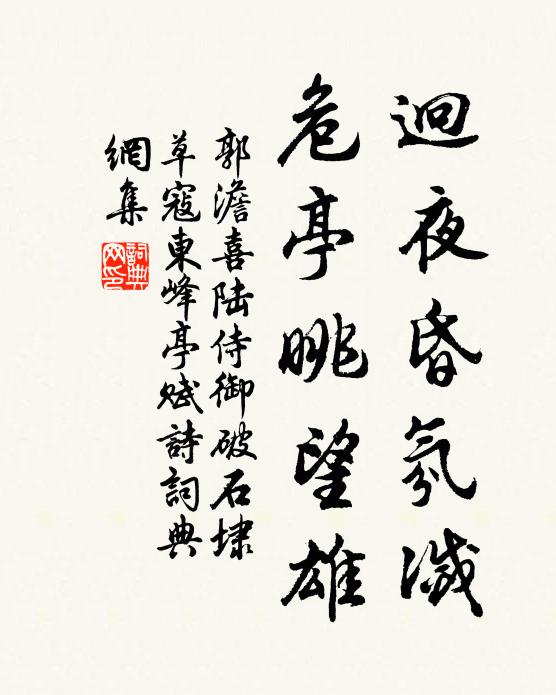 迴夜昏氛滅
危亭眺望雄
郭澹喜陸侍御破石埭
草寇東峰亭賦詩詞典
網集
詞典网印